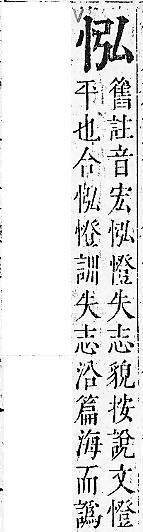 㤋
舊註音宏㤋憕失志貌按說文憕
平也合㤋憕訓失志沿篇海而譌